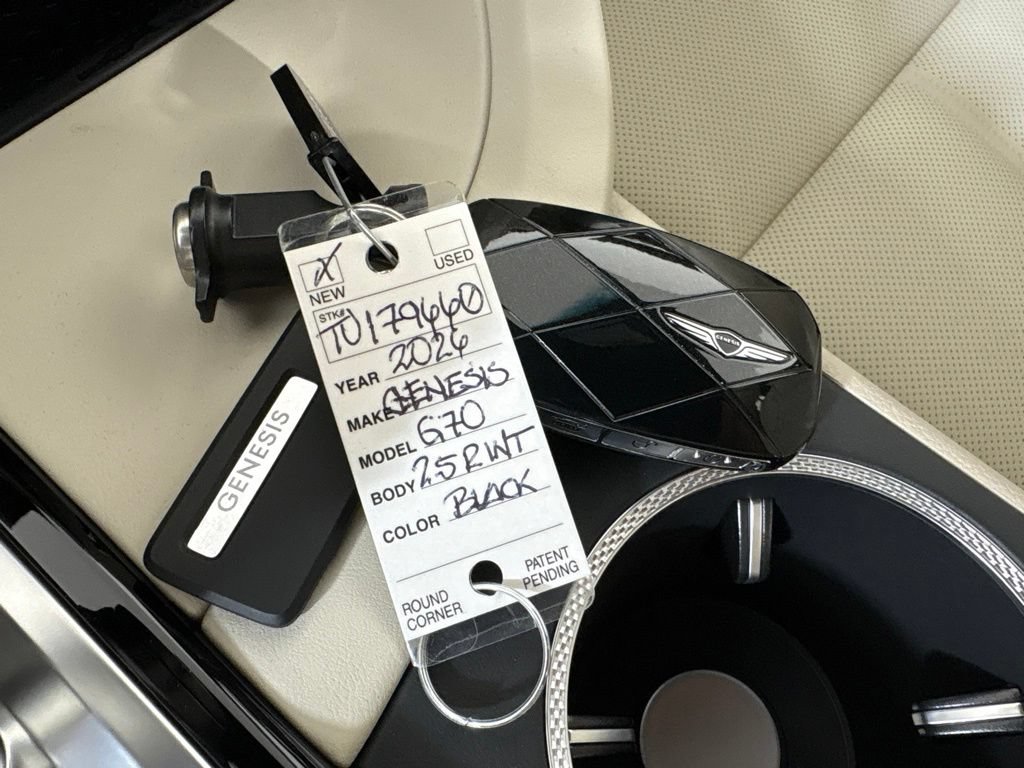 X
NEW
USED
STK# TU179660
YEAR 2026
MAKE GENESIS
MODEL G70
BODY 2.5RWT
COLOR BLACK
ROUND CORNER
PATENT PENDING
GENESIS
GENESIS